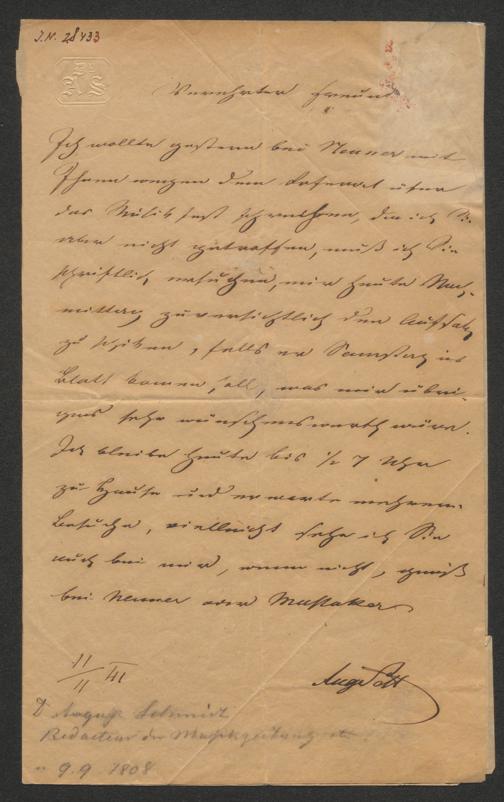 J.N. 28433
Verehrter Freund
Ich wollte gestern bei Neuner mit
Ihnen wegen dem Referat über
das Musikfest sprechen, da ich Sie
aber nicht getroffen, muß ich Sie
schriftlich ersuchen, mir heute Nach-
mittag zuversichtlich den Aufsatz
zu schiken, falls er Samstag ins
Blatt komen soll, was mir übri-
gens sehr wünschenswerth wäre.
Ich bleibe heute bis ½ 7 Uhr
zu Hause und erwarte mehrere
Besuche, vielleicht sehe ich Sie
auch bei mir, wenn nicht, gewiß
bei Neuner oder
11/11 41
D August Schmidt
Redacteur der Musikzeitung
9.9 1808